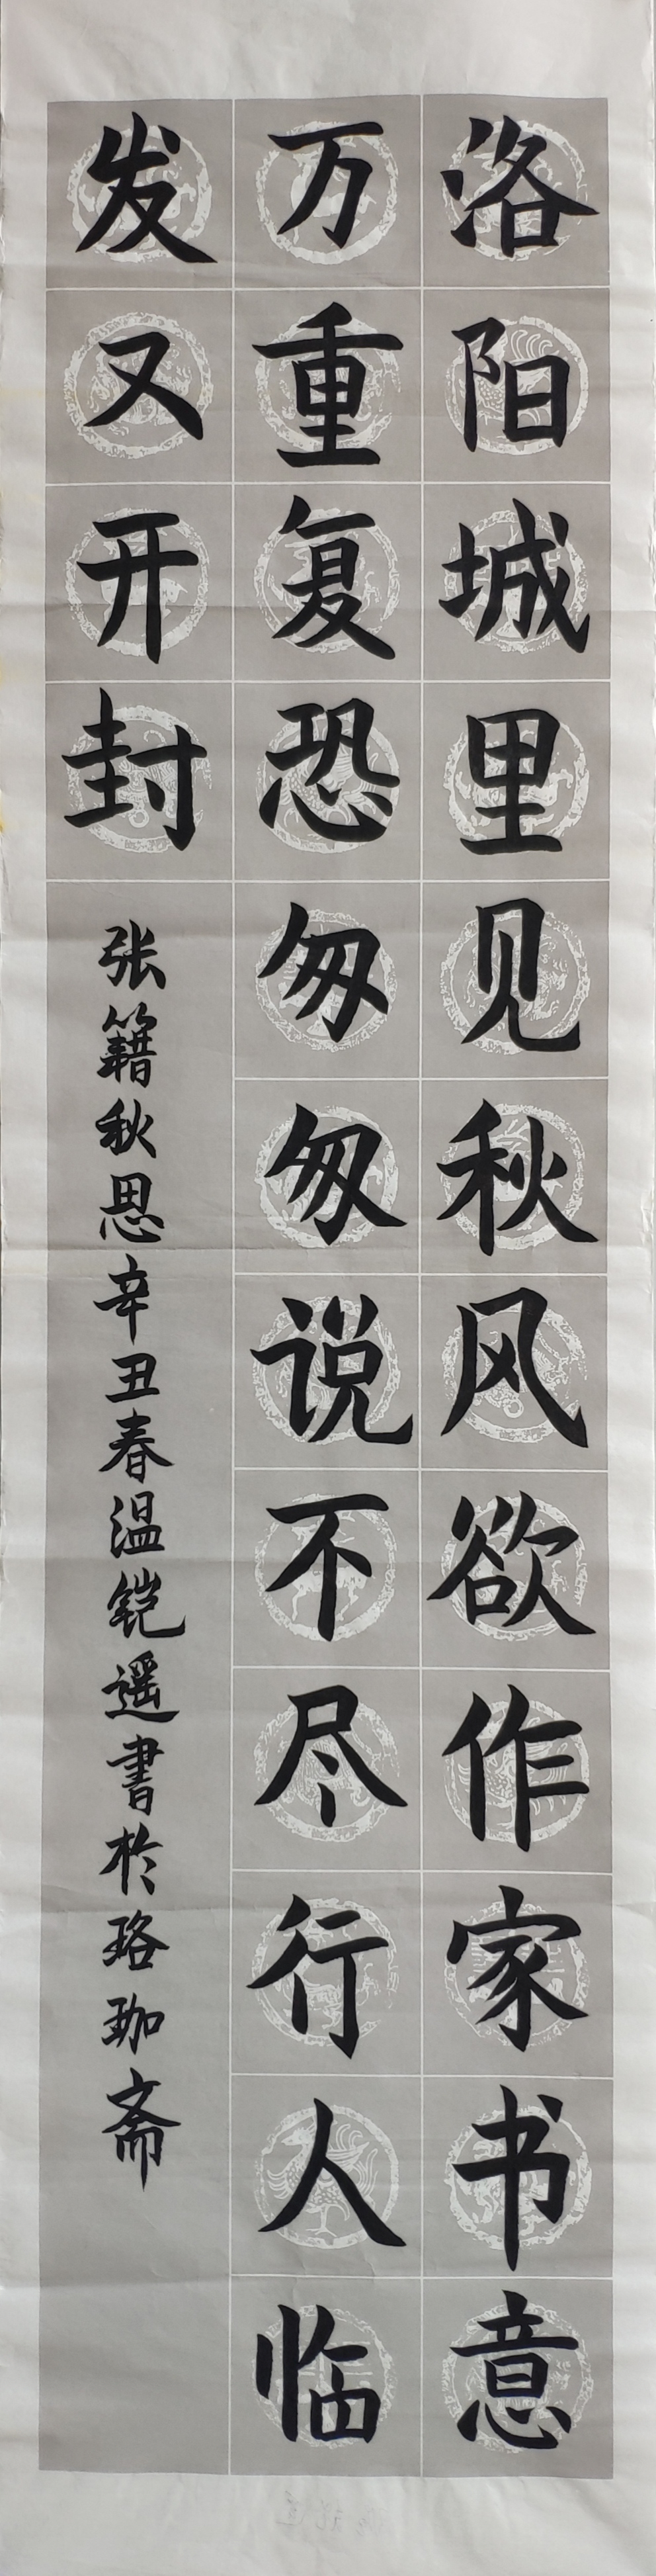 洛阳城里见秋风欲作家书意
万重复恐匆匆说不尽行人临
发又开封
张籍秋思辛丑春温铠遥書於珞珈斋